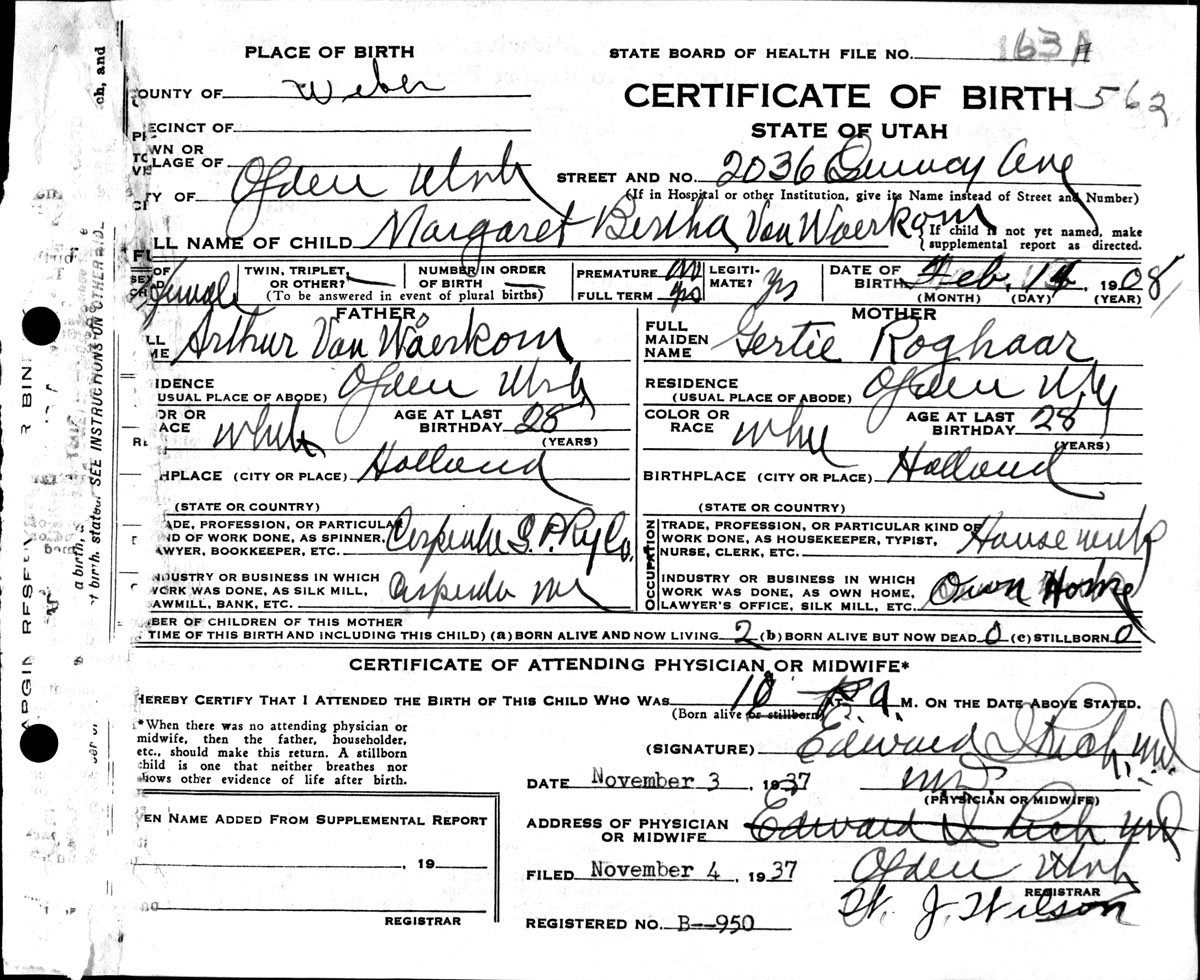 PLACE OF BIRTH
STATE BOARD OF HEALTH FILE NO. 163A
OUNTY OF Weber
CERTIFICATE OF BIRTH 562
ECINCT OF
STATE OF UTAH
WN OR
LAGE OF
STREET AND NO. 2036 Quincy Ave
TY OF Ogden Utah
(If in Hospital or other Institution, give its Name instead of Street and Number)
LL NAME OF CHILD Margaret Bertha Van Waerkom
If child is not yet named, make
supplemental report as directed.
Female
TWIN, TRIPLET,
OR OTHER?
NUMBER IN ORDER
OF BIRTH
(To be answered in event of plural births)
PREMATURE no
FULL TERM yes
LEGITI-
MATE? Yes
DATE OF
BIRTH Feb. 14 1908
(MONTH) (DAY) (YEAR)
FATHER
Arthur Van Waerkom
IDENCE
(USUAL PLACE OF ABODE) Ogden Utah
OR OR
RACE White
AGE AT LAST
BIRTHDAY 28
(YEARS)
HPLACE (CITY OR PLACE) Holland
(STATE OR COUNTRY)
ADE, PROFESSION, OR PARTICULAR
ND OF WORK DONE, AS SPINNER,
AWYER, BOOKKEEPER, ETC. Carpenter S. P. Ry Co.
INDUSTRY OR BUSINESS IN WHICH
WORK WAS DONE, AS SILK MILL,
AWMILL, BANK, ETC. Carpenter
MOTHER
FULL
MAIDEN
NAME Gertie Roghaar
RESIDENCE
(USUAL PLACE OF ABODE) Ogden
COLOR OR
RACE White
AGE AT LAST
BIRTHDAY 28
(YEARS)
BIRTHPLACE (CITY OR PLACE) Holland
(STATE OR COUNTRY)
OCCUPATION
TRADE, PROFESSION, OR PARTICULAR KIND OF
WORK DONE, AS HOUSEKEEPER, TYPIST,
NURSE, CLERK, ETC. Housework
INDUSTRY OR BUSINESS IN WHICH
WORK WAS DONE, AS OWN HOME,
LAWYER'S OFFICE, SILK MILL, ETC. Own Home
BER OF CHILDREN OF THIS MOTHER
TIME OF THIS BIRTH AND INCLUDING THIS CHILD) (a) BORN ALIVE AND NOW LIVING 2 (b) BORN ALIVE BUT NOW DEAD 0 (c) STILLBORN 0
CERTIFICATE OF ATTENDING PHYSICIAN OR MIDWIFE*
HEREBY CERTIFY THAT I ATTENDED THE BIRTH OF THIS CHILD WHO WAS 10 AT A. M. ON THE DATE ABOVE STATED.
(Born alive or stillborn)
*When there was no attending physician or
midwife, then the father, householder,
etc., should make this return. A stillborn
child is one that neither breathes nor
shows other evidence of life after birth.
(SIGNATURE) Edward I Rich M.D.
DATE November 3, 1937 M.D.
(PHYSICIAN OR MIDWIFE)
ADDRESS OF PHYSICIAN
OR MIDWIFE Edward I Rich MD
Ogden Utah
EN NAME ADDED FROM SUPPLEMENTAL REPORT
, 19
REGISTRAR
FILED November 4, 1937
REGISTRAR
W. J. Wilson
REGISTERED NO. B--950
SEE INSTRUCTIONS ON OTHER SIDE